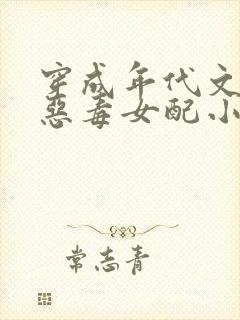 穿成年代文
恶毒女配小
常志青